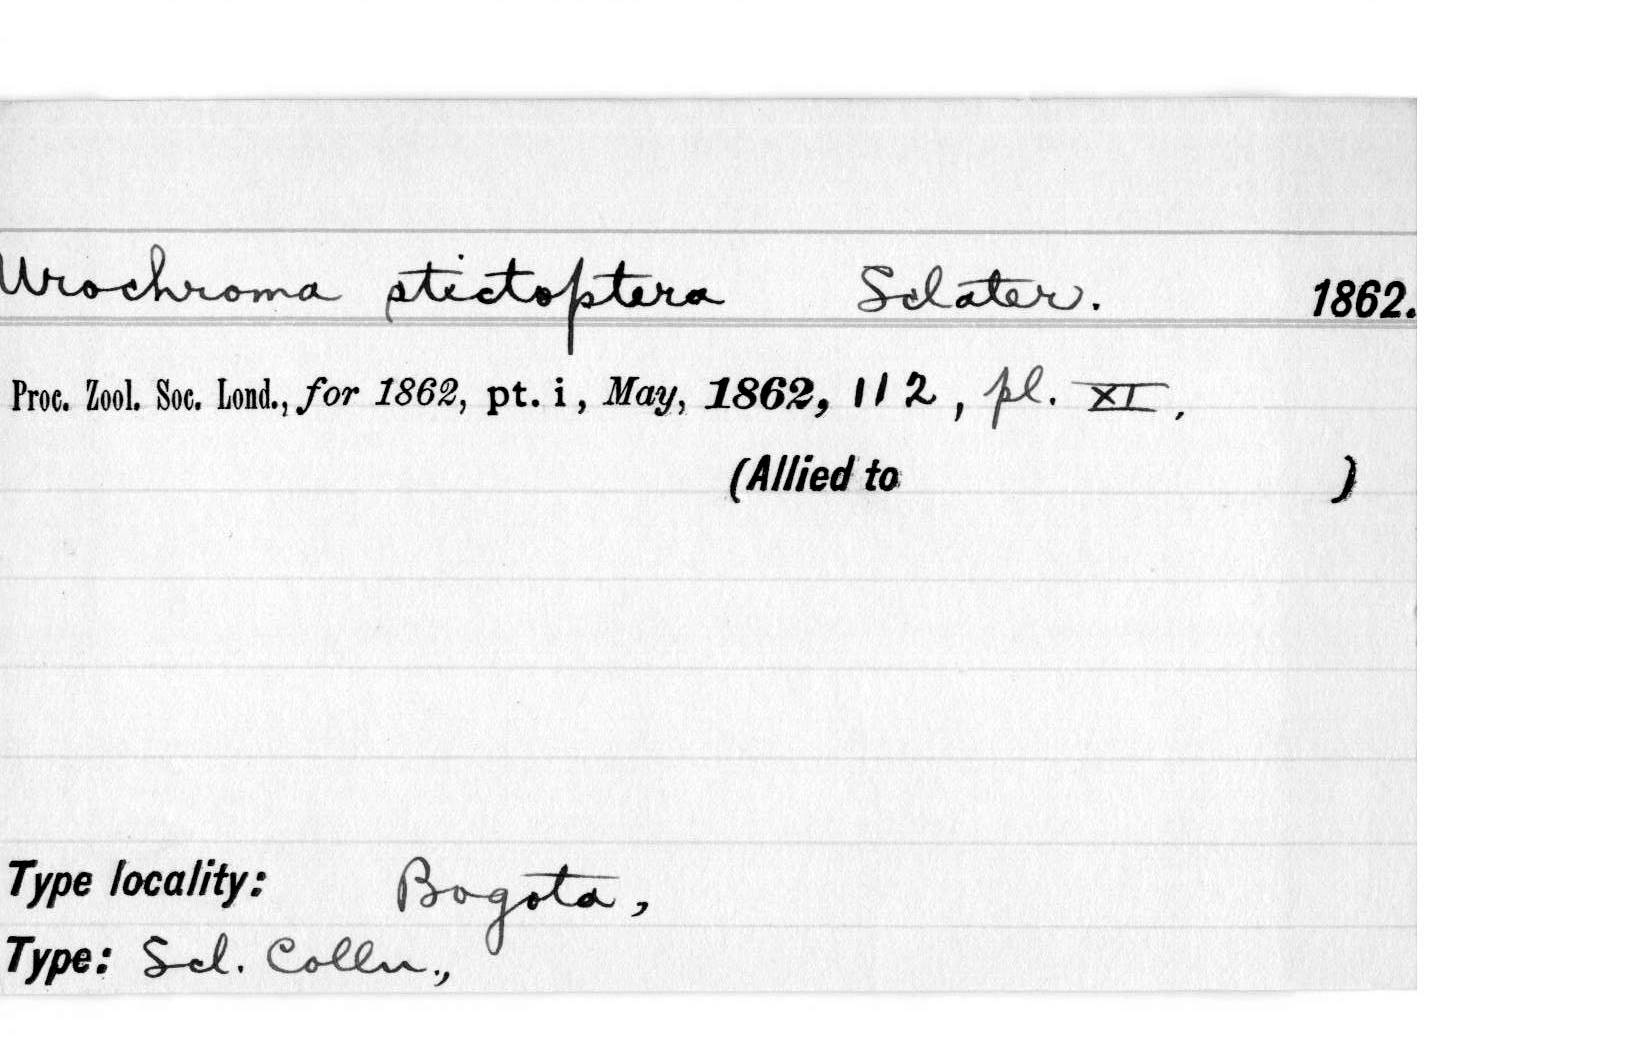 Urochroma stictoptera Sclater. 1862.
Proc. Zool. Soc. Lond., for 1862, pt. i, May, 1862, 112, pl. XI.
(Allied to )
Type locality: Bogota,
Type: Scl. Colln.,